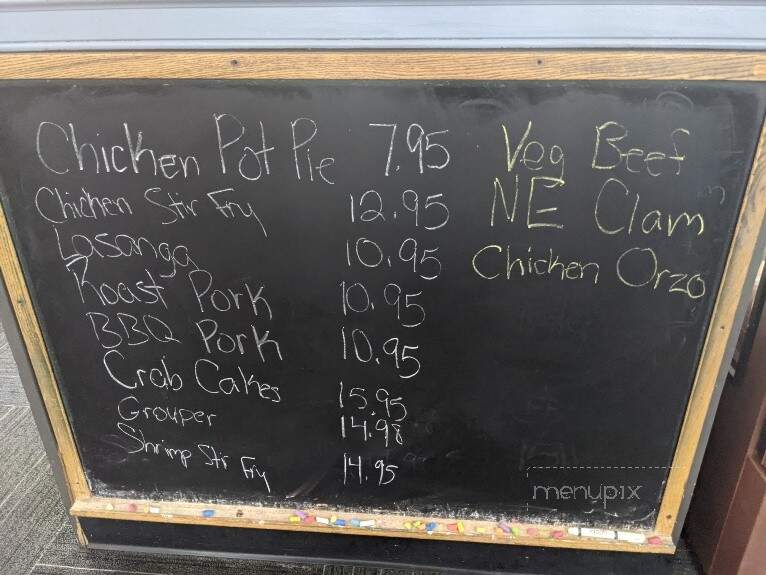 Chicken Pot Pie 7.95
Chicken Stir Fry 12.95
Lasanga 10.95
Roast Pork 10.95
BBQ Pork 10.95
Crab Cakes 15.95
Grouper 14.98
Shrimp Stir Fry 14.95
Veg Beef
NE Clam
Chicken Orzo
menupix